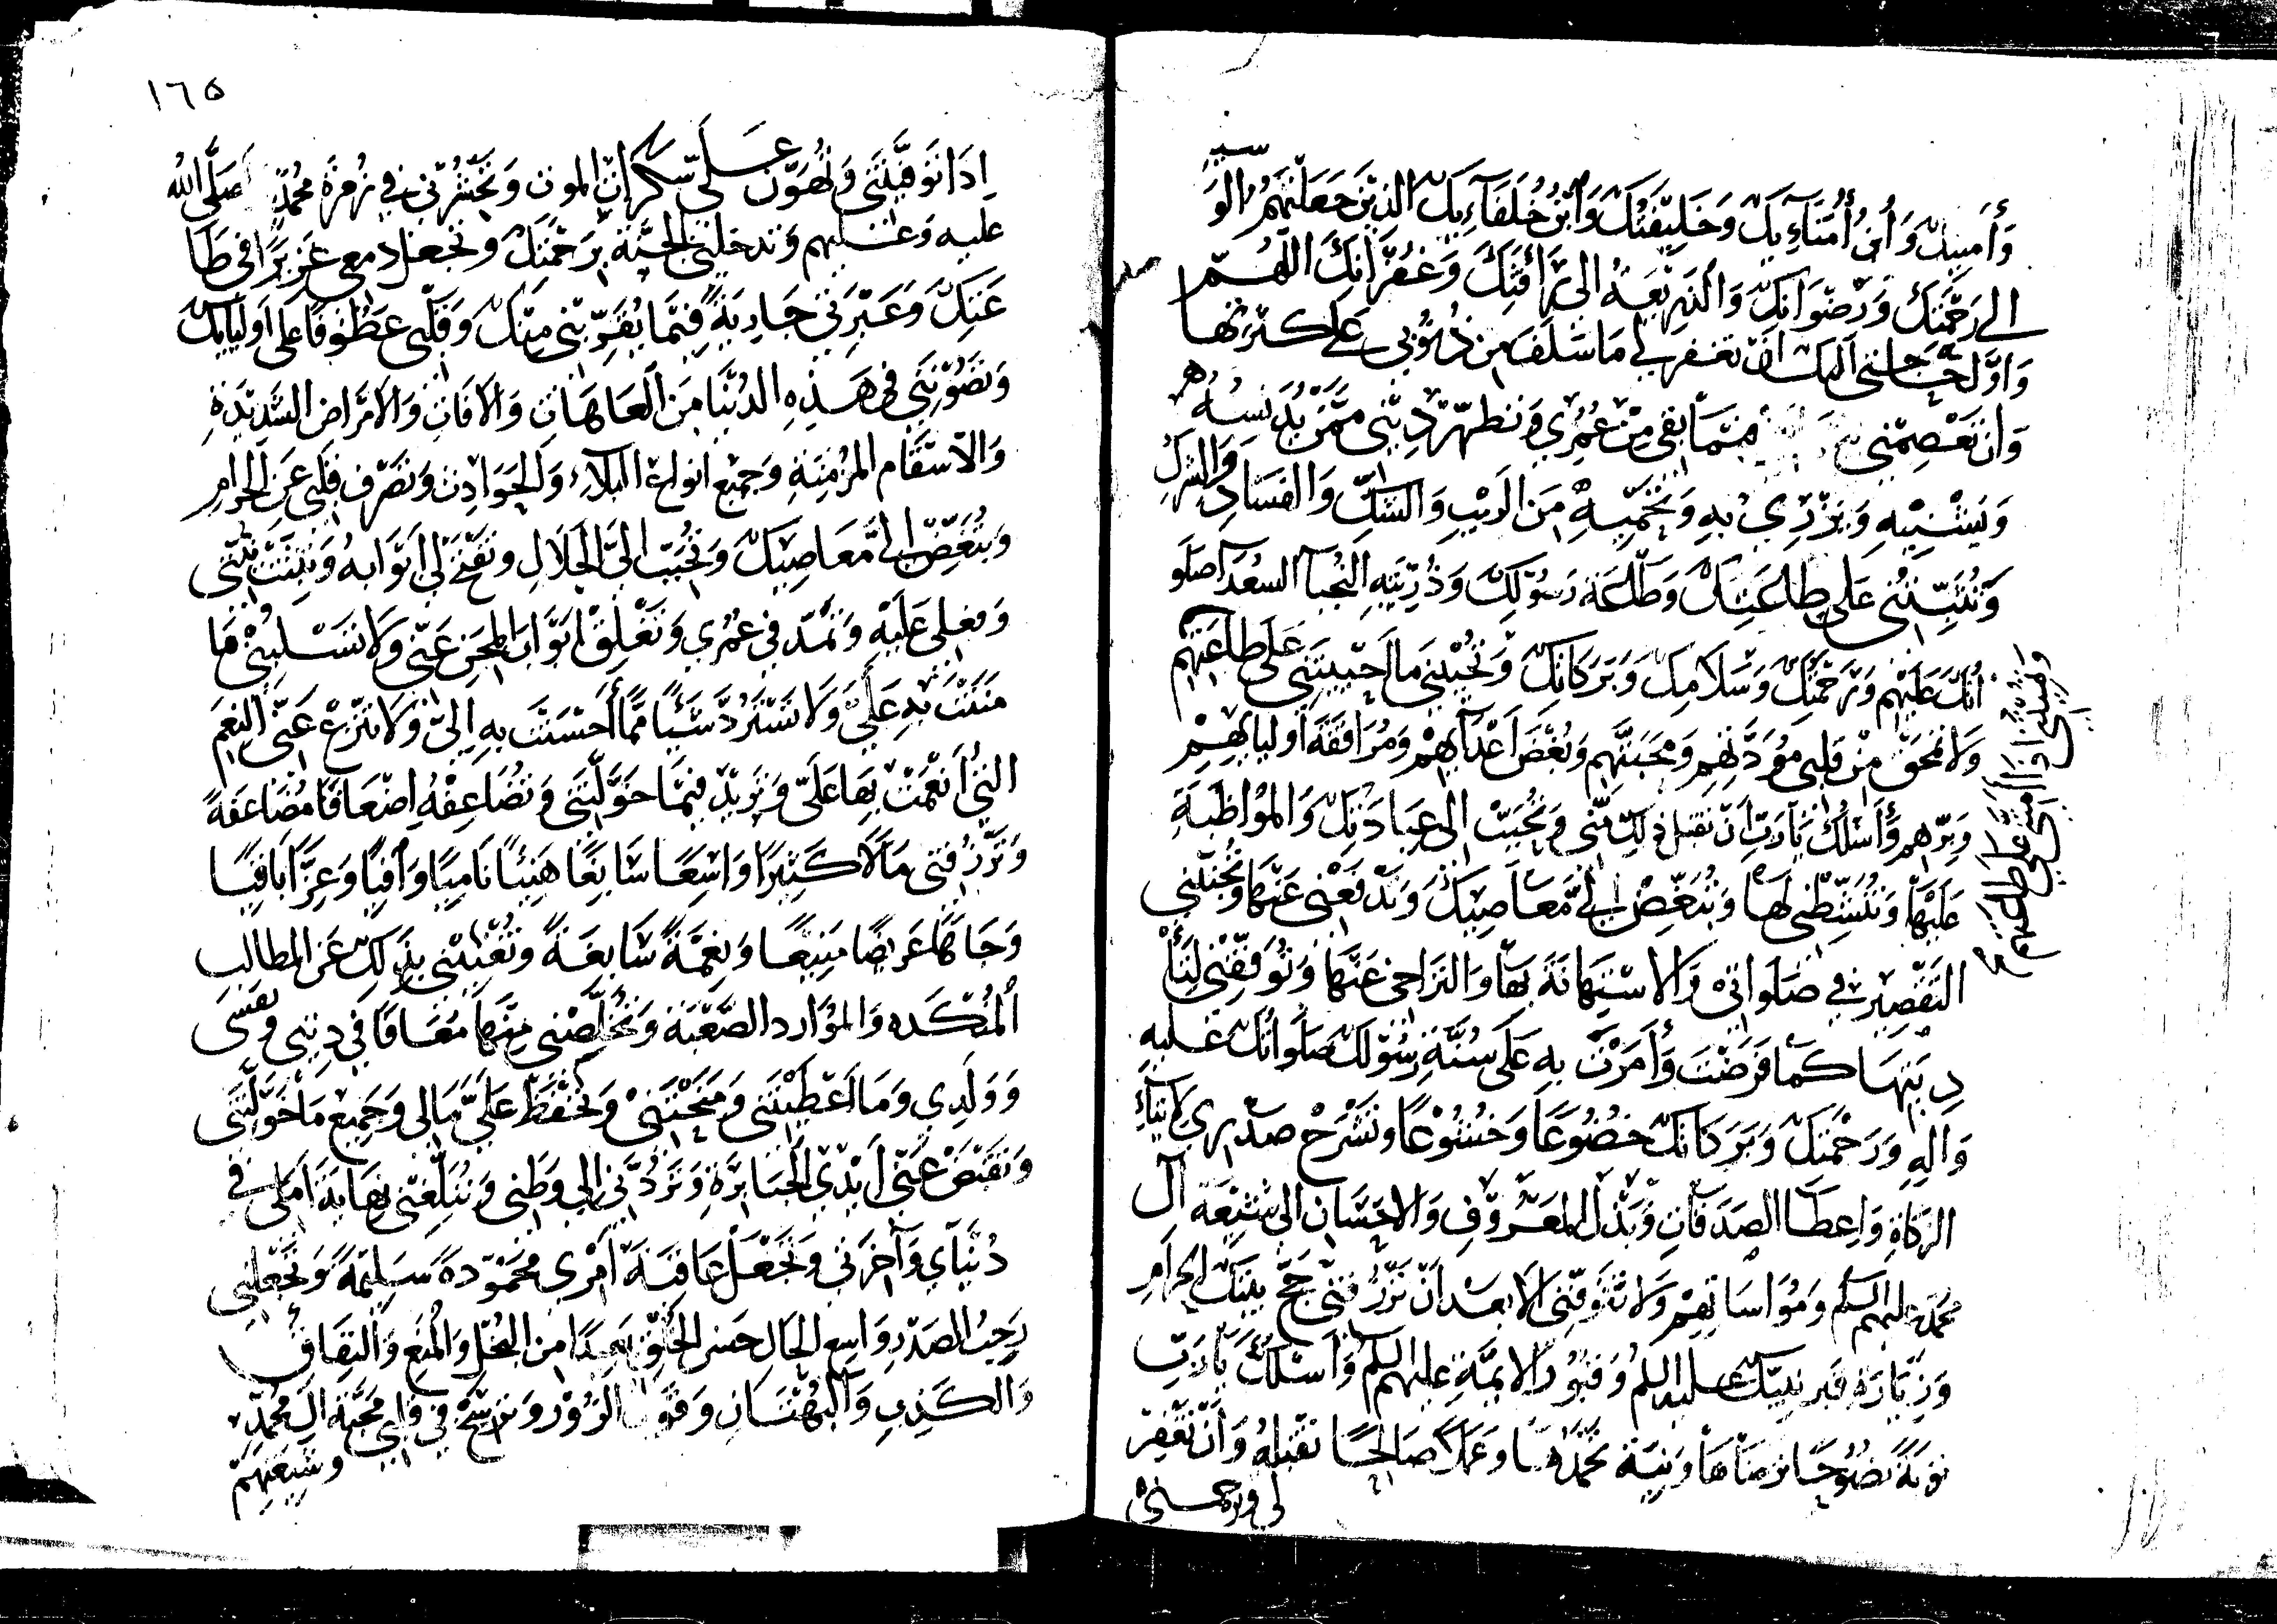 وَأَمِينِكَ وَابْنُ أُمَنَائِكَ وَخَلِيفَتِكَ وَابْنُ خُلَفَائِكَ الَّذِينَ جَعَلْتَهُمُ الْوَسِيلَةَ
إلى رَحْمَتِكَ وَرِضْوَانِكَ وَالذَّرِيعَةَ الى رَأْفَتِكَ وَغُفْرَانِكَ اللَّهُمَّ
وَاوّل حَاجتي اليك ان تغفر لي مَا سَلَفَ مِن ذُنُوبِي عَلى كثرتها
وَان تَعْصِمَنِي فيمَا بَقِيَ مِنْ عُمْرِي وَتطهّرَ دِينِي ممَّا يُدَنّسُهُ
وَيَشِينُهُ وَيُزْرِي بِهِ وَتَحْمِيَهُ مِنَ الرَيْبِ وَالشَكِّ وَالفَسَادِ وَالشِركِ
وَتُثَبِّتَنِي عَلى طاعَتِكَ وَطَاعَةِ رَسُولِكَ وَذُرِّيَّتِهِ النُّجَبَآ السُّعَدَآ صَلَو
اتُكَ عَلَيْهِم وَرَحْمَتُكَ وَسَلَامُكَ وَبَرَكَاتُكَ وَتُحْيِيَنِي مَا احْيَيْتَنِي عَلى طَاعَتِهِمْ
وَتُمِيتَنِي اذا امَتَّنِي عَلى طَاعَتِهِمْ
وَلَا تَمْحُوَ مِنْ قَلْبِي مَوَدَّتَهُم وَمَحَبَّتَهُم وَبُغْضَ اعْدَآئِهِمْ وَمُرَافَقَةَ اوليائِهِمْ
وَبِرَّهِم وَأَسْئَلُكَ يَا رَبِّ اَنْ تَقْبَلَ ذلِكَ مِنِّي وَتُحَبِّبَ الَيَّ عِبَادَتَكَ وَالْمُوَاظَبَةَ
عَلَيْهَا وَتُنَشِّطَنِي لَهَا وَتُبَغِّضَ الَيَّ مَعَاصِيَكَ وَتَدْفَعَنِي عَنْهَا وَتُجَنِّبَنِي
التَقْصِيرَ فِي صَلَوَاتِي وَالاسْتِهَانَةَ بِهَا وَالتَرَاخِيَ عَنْهَا وَتُوَفِّقَنِي لِتَأْ
دِيَتِهَا كَمَا فَرَضْتَ وَأَمَرْتَ بِهِ عَلَى سُنَّةِ رَسُوْلِكَ صَلَوَاتُكَ عَلَيهِ
وَالِهِ وَرَحْمَتُكَ وَبَرَكَاتُكَ خُضُوْعًا وَخُشُوْعًا وَتَشْرَحَ صَدْرِي لِايتآءِ
الزكاةِ وَاعطَآ الصَدَقَاتِ وَبَذْلِ المَعْرُوفِ وَالاحْسَانِ الى شِيْعَةِ آل
مُحَمَّد عليهم السلم وَمُوَاسَاتِهِمْ وَلَا تَتَوَفَّنِي الَّا بعد اَنْ تَرْزُقَنِي حَجَّ بَيْتِكَ الحَرَامِ
وَزِيَارَة قَبر نبيّك عليه السلم وَقُبُوْرِ الائِمَّةِ عليهم السلم وَاسْئَلُكَ يَا رَبِّ
تَوْبَةً نَصُوْحًا تَرْضَاهَا وَنِيَّةً تَحْمَدُهَا وَعَمَلًا صَالِحًا تَقْبَلُهُ وَانْ تَغْفِرَ
لي وترحمني
١٦٥
اِذَا تَوَفَّيْتَنِي وَتُهَوِّنَ عَلَيَّ سَكَرَاتِ المَوت وَتَحْشُرَنِي فِي زُمْرَةِ مُحَمَّدٍ صَلَّى اللهُ
عَلَيه وَعَلَيهم وَتدخلني الجَنَّةَ بِرَحْمَتِكَ وَتَجْعَلَ دَمعي غَزِيرًا فِي طَا
عَتِكَ وَعَبْرَتِي جَارِيَةً فِيمَا يُقَرِّبُنِي مِنْكَ وَقَلْبِي عَطُوفًا عَلى اوليائِكَ
وَتَصُوْنَنِي فِي هَذِهِ الدُنْيَا مِنَ العَاهَاتِ وَالافَاتِ وَالامْرَاضِ الشَّدِيْدَةِ
وَالاسْقَامِ المُزْمِنَةِ وَجَمِيْعِ انواعِ البَلَآءِ وَالحَوَادِثِ وَتَصْرِفَ قَلْبِي عَنِ الحَرَامِ
وَتُبَغِّضَ الَيَّ مَعَاصِيَكَ وَتُحَبِّبَ الَيَّ الحَلَالَ وَتَفْتَحَ لِي ابْوَابَهُ وَتُثَبِّتَ نِيَّتِي
وَفِعْلِي عَلَيْهِ وَتَمُدَّ فِي عُمْرِي وَتَغْلِقَ ابْوَابَ المِحَنِ عَنِّي وَلَا تَسْلُبَنِي مَا
مَنَنْتَ بِهِ عَلَيَّ وَلَا تَسْتَرِدَّ شَيْئًا مِمَّا أَحْسَنْتَ بِهِ إِلَيَّ وَلَا تَنْزِعَ عَنِّي النِّعَمَ
التي أَنْعَمْتَ بِهَا عَلَيَّ وَتَزِيدَ فِيمَا خَوَّلْتَنِي وَتُضَاعِفَهُ اضْعَافًا مُضَاعَفَةً
وَتَرْزُقَنِي مَالًا كَثِيْرًا وَاسِعًا سَائِغًا هَنِيْئًا نَامِيًا وَافِيًا وَعِزًّا بَاقِيًا
وَجَاهًا عَرِيضًا مَنِيْعًا وَنِعْمَةً سَابِغَةً وَتُغْنِيَنِي بِذَلِكَ عَنِ المطالب
المُنْكَدَه وَالمَوَارِد الصَّعْبَة وَتُخَلِّصَنِي مِنْهَا مُعَافًا فِي دِيْنِي وَنفسي
وَوَلَدِي وَمَا اَعْطَيْتَنِي وَمَنَحْتَنِي وَتَحْفَظَ عَلَيَّ مَالِي وَجَمِيْعَ مَا خَوَّلْتَنِي
وَتَقْبِضَ عَنِّي أَيْدِيَ الجَبَابِرَةِ وَتَرُدَّنِي الى وَطَنِي وَتُبَلِّغَنِي نِهَايَةَ اَمَلِي فِي
دُنْيَايَ وَآخِرَتِي وَتَجْعَلَ عَاقِبَةَ اَمْرِي مَحْمُوْدَةً سَلِيْمَةً وَتَجْعَلَنِي
رَحِيْبَ الصَدْرِ وَاسِعَ الحَالِ حَسَنَ الخُلُقِ بَعِيدًا مِنَ البُخْلِ وَالمَنْعِ وَالنِفَاقِ
وَالكَذِبِ وَالبُهْتَانِ وَقَوْلِ الزُوْرِ وَتُرَسِّخَ فِي قَلْبِي مَحَبَّةَ الِ مُحَمَّدٍ
وَشِيْعَتِهِمْ